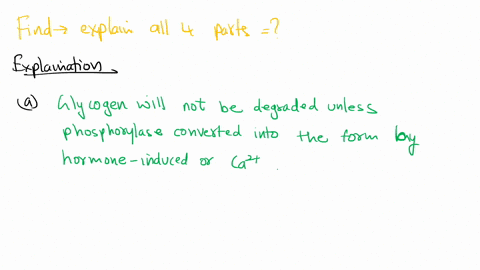 Find → explain all 4 parts =?
Explaination
(a) Glycogen will not be degraded unless
phosphorylase converted into the form by
hormone-induced or Ca²⁺